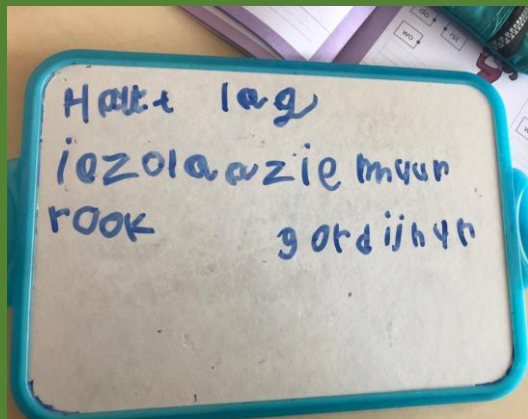 do
wo
lag
iezolaazie muur
rook gordijnun